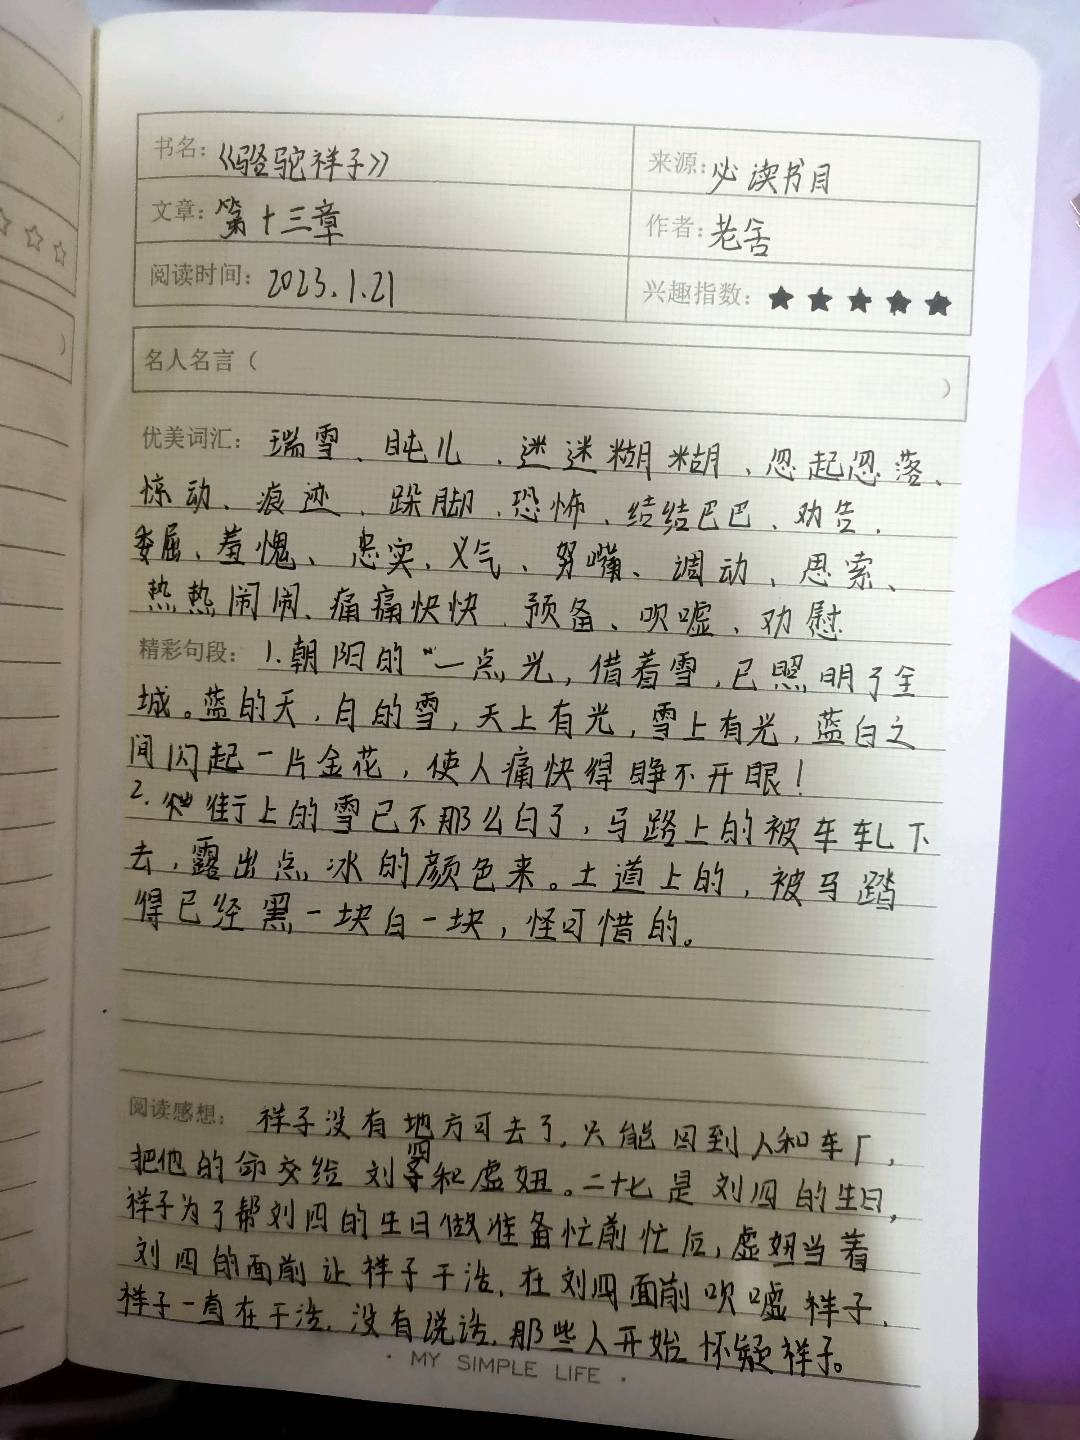 书名：《骆驼祥子》 来源：必读书目
文章：第十三章 作者：老舍
阅读时间：2023.1.21 兴趣指数：★★★★★
名人名言（ ）
优美词汇：瑞雪、盹儿、迷迷糊糊、忽起忽落、
惊动、痕迹、跺脚、恐怖、结结巴巴、劝告、
委屈、羞愧、忠实、义气、努嘴、调动、思索、
热热闹闹、痛痛快快、预备、吹嘘、劝慰
精彩句段：1.朝阳的“一点光，借着雪，已照明了全
城。蓝的天，白的雪，天上有光，雪上有光，蓝白之
间闪起一片金花，使人痛快得睁不开眼！
2.街上的雪已不那么白了，马路上的被车轧下
去，露出点冰的颜色来。土道上的，被马踏
得已经黑一块白一块，怪可惜的。
阅读感想：祥子没有地方可去了，只能回到人和车厂，
把他的命交给刘四和虚妞。二十七是刘四的生日，
祥子为了帮刘四的生日做准备忙前忙后，虚妞当着
刘四的面前让祥子干活，在刘四面前吹嘘祥子，
祥子一直在干活，没有说话，那些人开始怀疑祥子。
· MY SIMPLE LIFE ·